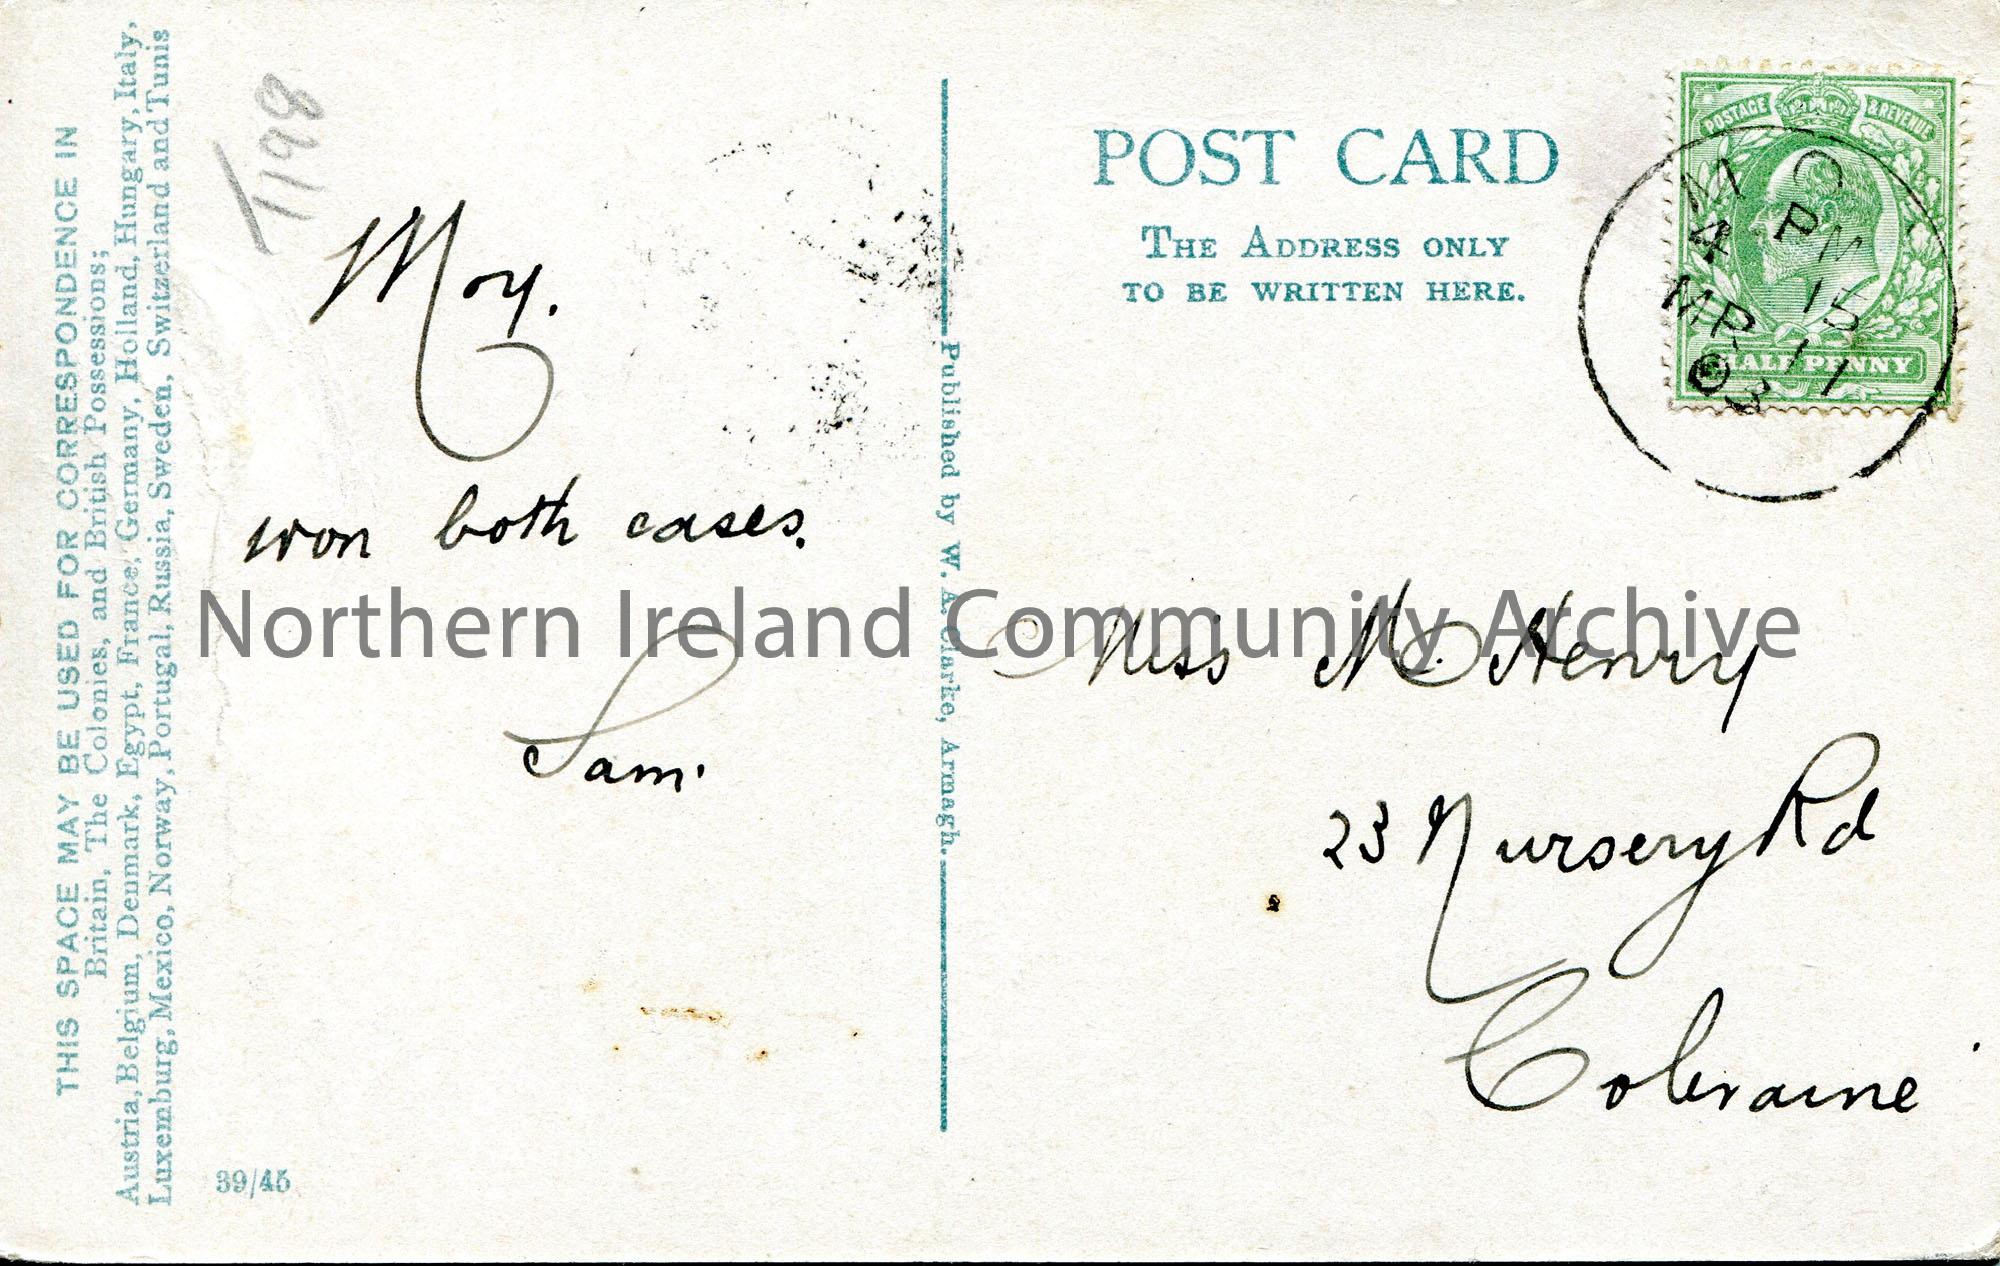 THIS SPACE MAY BE USED FOR CORRESPONDENCE IN
Britain, The Colonies, and British Possessions;
Austria, Belgium, Denmark, Egypt, France, Germany, Holland, Hungary, Italy,
Luxemburg, Mexico, Norway, Portugal, Russia, Sweden, Switzerland and Tunis
39/45
T198
Moy.
won both cases.
Sam.
Published by W. A. Clarke, Armagh.
POST CARD
THE ADDRESS ONLY
TO BE WRITTEN HERE.
POSTAGE & REVENUE
HALF PENNY
M O
4 PM
MR 15
11
Miss McHenry
23 Nursery Rd
Coleraine
Northern Ireland Community Archive